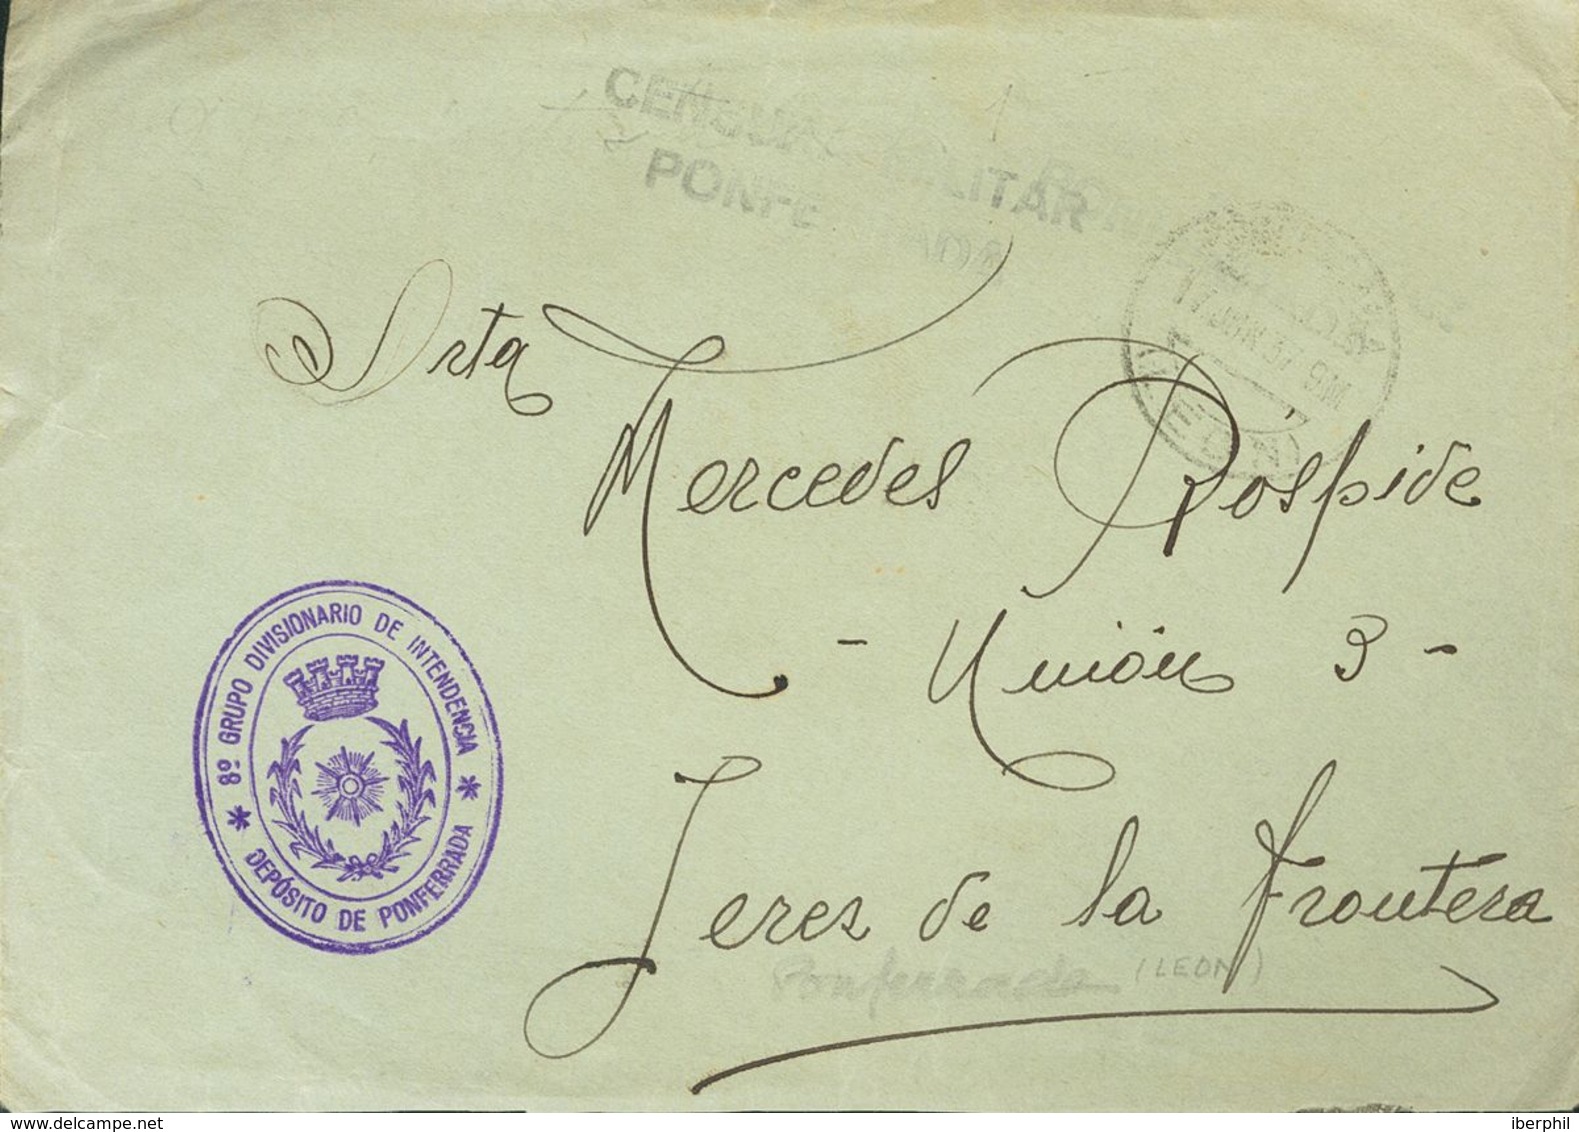 CENSURA MILITAR
PONFERRADA
17 JUN 37 9M
Srta
Mercedes Róspide
- Unión 3 -
Jerez de la Frontera
Ponferrada (LEON)
8º GRUPO DIVISIONARIO DE INTENDENCIA
* DEPÓSITO DE PONFERRADA *
delcampe.net
iberphil